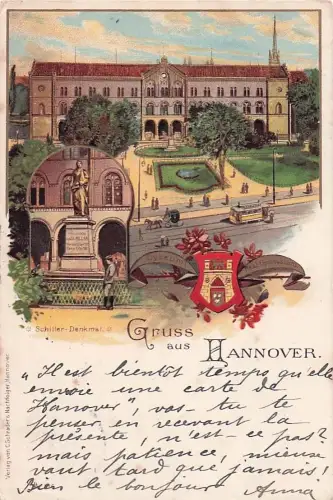 Schiller-Denkmal.
Gruss
aus
HANNOVER.
"Il est bientôt temps qu'elle
envoie une carte de
Hanover", vas-tu te
penser en recevant la
présente, n'est-ce pas?
mais patience, mieux
vaut tard que jamais!
Bien le bonjour Anna!